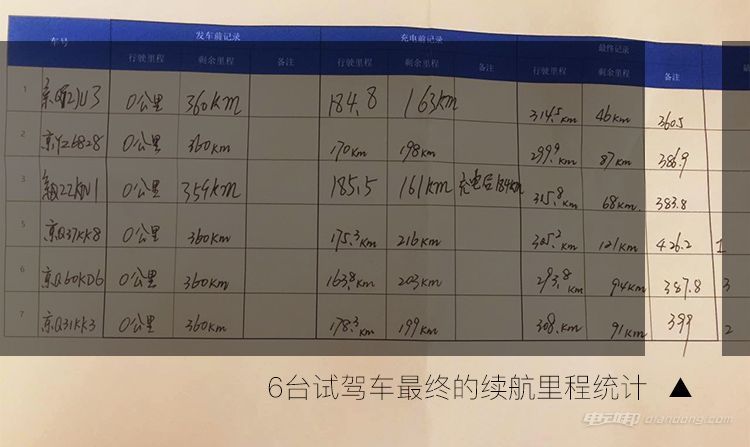 车号 发车前记录 充电前记录 最终记录
行驶里程 剩余里程 备注 行驶里程 剩余里程 备注 行驶里程 剩余里程 备注
1 0公里 360km 184.8 163km 314.5km 46km 360.5
2 0公里 360km 170km 198km 299.9km 87km 386.9
3 0公里 359km 185.5 161km 充电后184km 315.8km 68km 383.8
5 京Q37KK8 0公里 360km 175.3km 216km 305.2km 121km 426.2 1
6 京Q60KD6 0公里 360km 163.8km 203km 293.8km 94km 387.8 3
7 京Q31KK3 0公里 360km 178.3km 199km 308.km 91km 399 2
6台试驾车最终的续航里程统计 ▲
电动邦 diandong.com